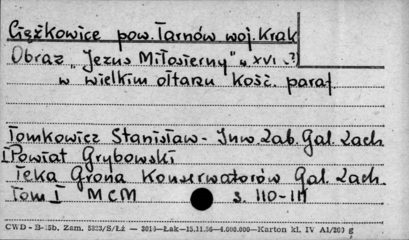 Ciężkowice pow. Tarnów woj. Krak
Obraz „Jezus Miłosierny" w. XVI (?)
w wielkim ołtarzu Kość. paraf.
Tomkowicz Stanisław - Inw. Zab. Gal. Zach.
I Powiat Grybowski
Teka Grona Konserwatorów Gal. Zach.
Tom I MCM s. 110-111
CWD - B-15b. Zam. 5823/S/Łż — 3016—Łak—15.11.56—4.000.000—Karton kl. IV A1/200 g